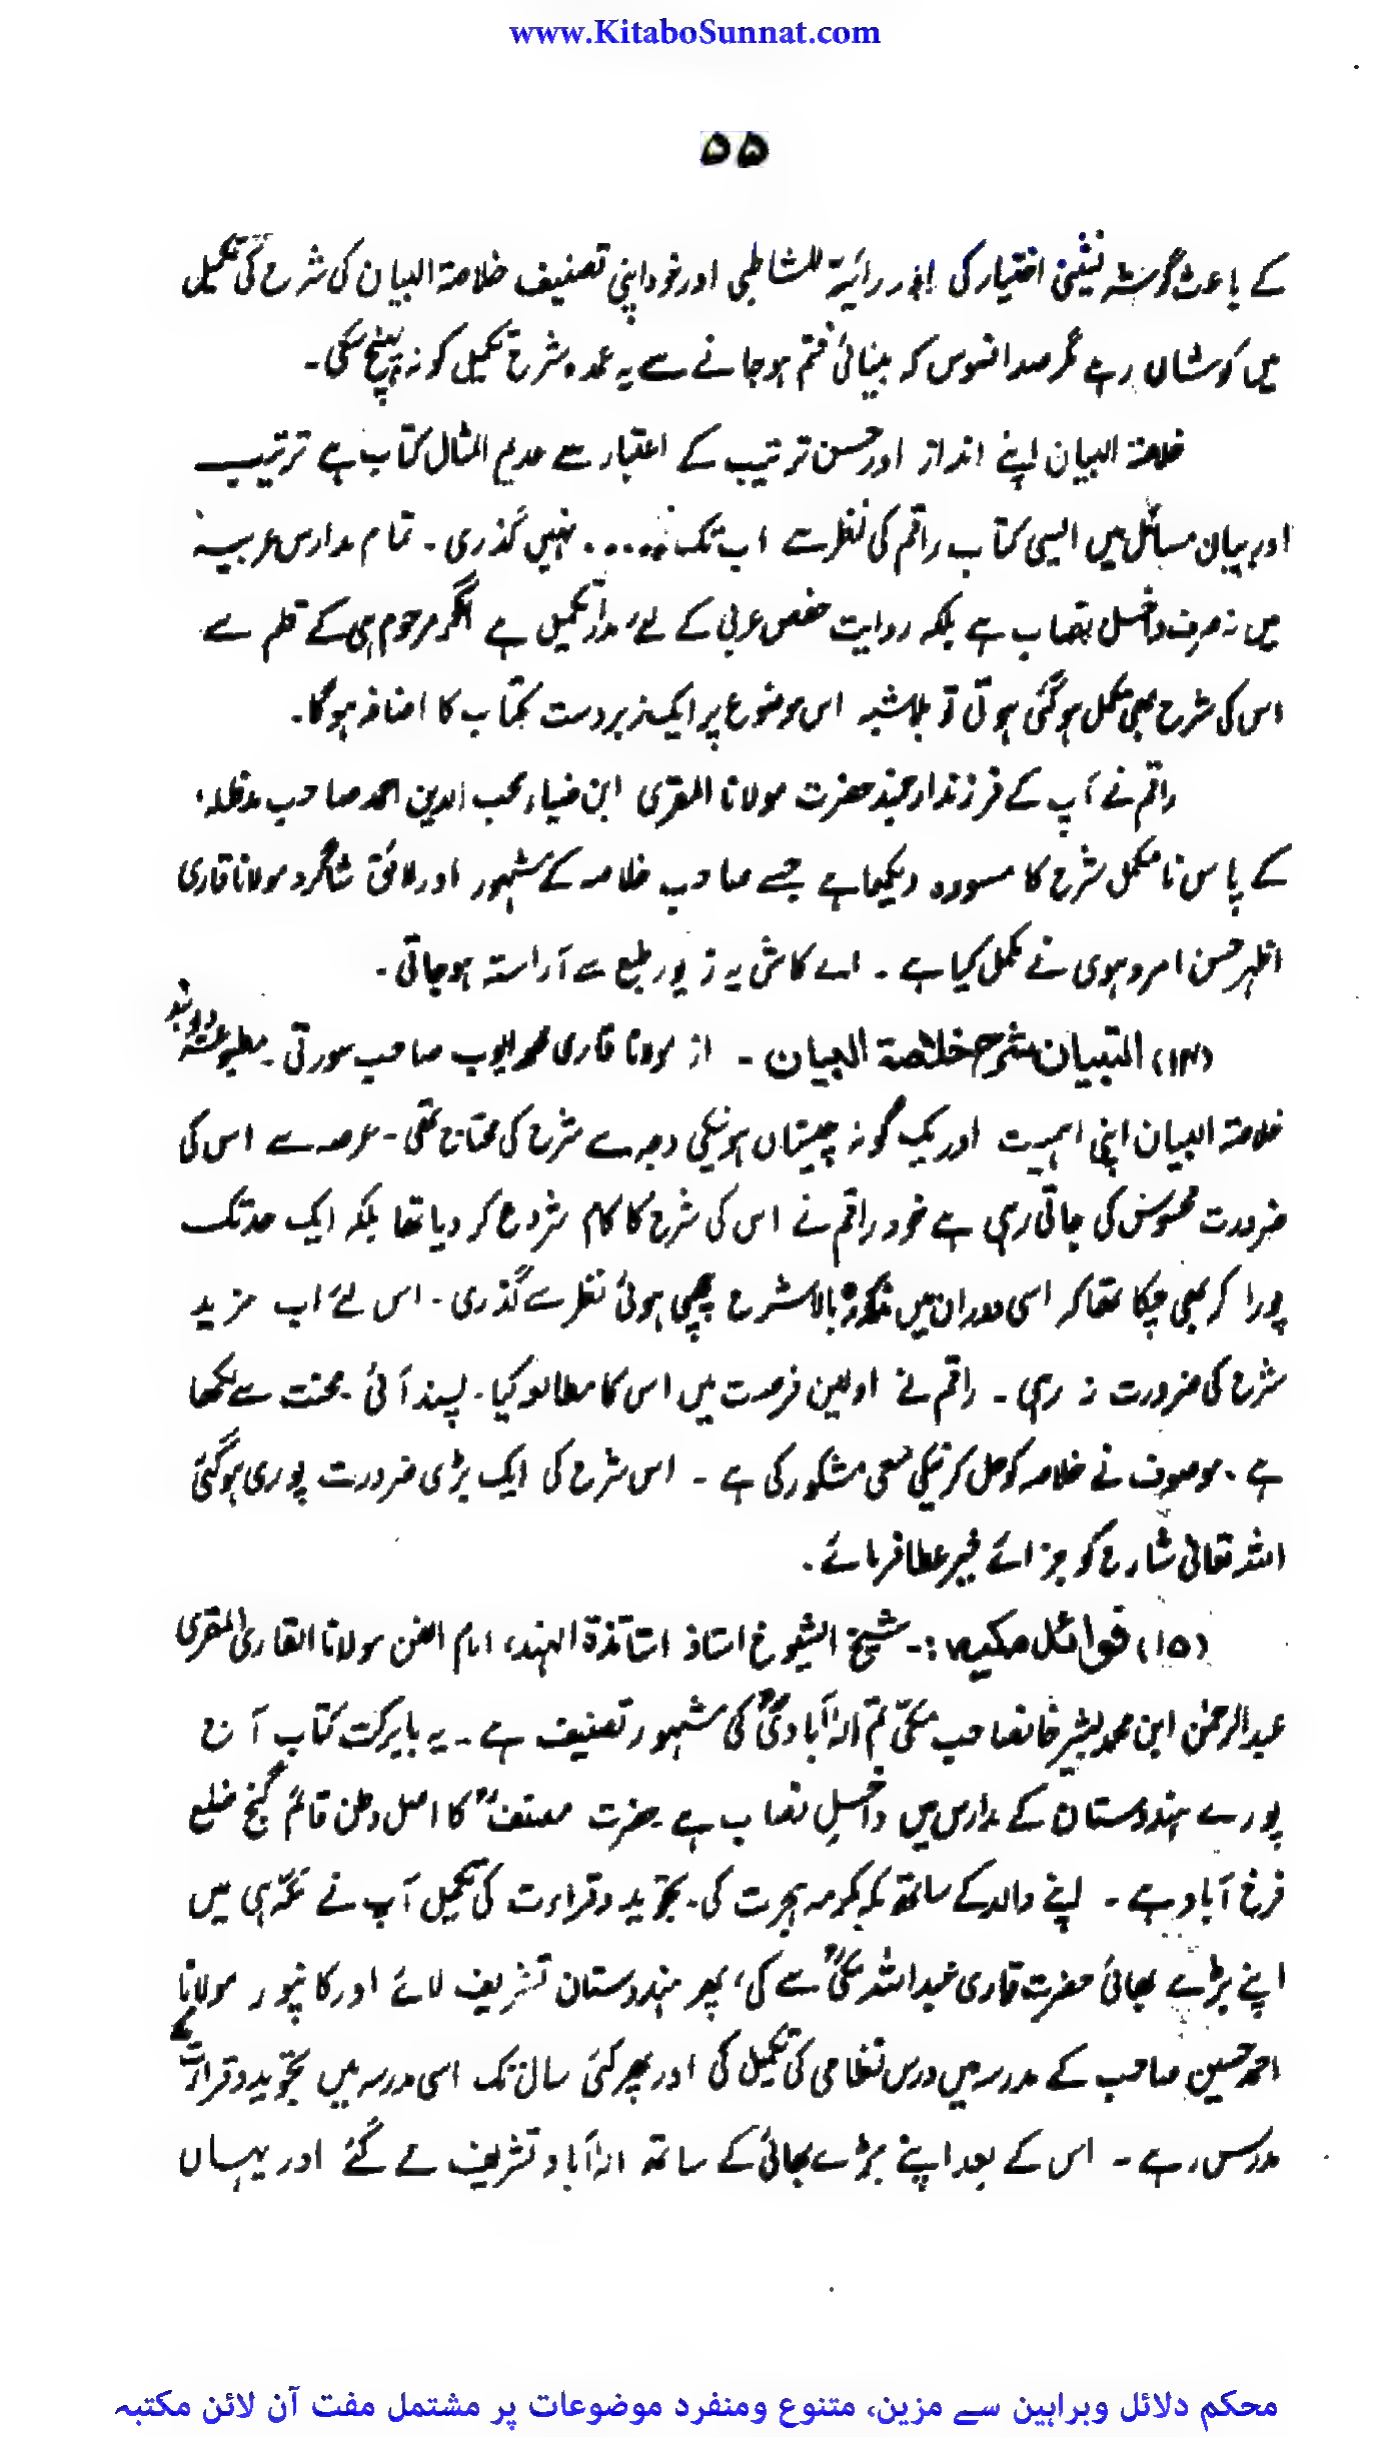 www.KitaboSunnat.com
۵۵
کے باعث گوشہ نشینی اختیار کی اور رائیۃ للشاطبی اور خود اپنی تصنیف خلاصۃ البیان کی شرح کی تکمیل
میں کوشاں رہے مگر صد افسوس کہ بینائی ختم ہو جانے سے یہ عمدہ شرح تکمیل کو نہ پہنچ سکی۔
خلاصۃ البیان اپنے انداز اور حسن ترتیب کے اعتبار سے عدیم المثال کتاب ہے ترتیب
اور بیان مسائل میں ایسی کتاب راقم کی نظر سے اب تک ..... نہیں گذری۔ تمام مدارس عربیہ
میں نہ صرف داخل نصاب ہے بلکہ روایت حفص عربی کے لئے مدار تکمیل ہے اگر مرحوم ہی کے قلم سے
اس کی شرح بھی مکمل ہو گئی ہوتی تو بلاشبہ اس موضوع پر ایک زبردست کتاب کا اضافہ ہوگا۔
راقم نے آپ کے فرزند ارجمند حضرت مولانا المقری ابن ضیاء محب الدین احمد صاحب مدظلہ،
کے پاس نامکمل شرح کا مسودہ دیکھا ہے جسے صاحب خلاصہ کے مشہور اور لائق شاگرد مولانا قاری
اظہر حسن امروہوی نے مکمل کیا ہے ۔ اے کاش یہ زیور طبع سے آراستہ ہو جاتی ۔
(۱۴) التبیان شرح خلاصۃ البیان ۔ از مولانا قاری محمد ایوب صاحب سورتی ۔ مطبوعہ دیوبند
خلاصۃ البیان اپنی اہمیت اور یک گونہ چیستاں ہونیکی وجہ سے شرح کی محتاج تھی۔ عرصہ سے اس کی
ضرورت محسوس کی جاتی رہی ہے خود راقم نے اس کی شرح کا کام شروع کر دیا تھا بلکہ ایک حد تک
پورا کر بھی چکا تھا کہ اسی دوران میں مذکورۂ بالا شرح چھپی ہوئی نظر سے گذری۔ اس لئے اب مزید
شرح کی ضرورت نہ رہی ۔ راقم نے اولین فرصت میں اس کا مطالعہ کیا۔ پسند آئی۔ محنت سے لکھا
ہے ۔ موصوف نے خلاصہ کو حل کرنیکی سعی مشکور کی ہے ۔ اس شرح کی ایک بڑی ضرورت پوری ہو گئی
اللہ تعالیٰ شارح کو جزائے خیر عطا فرمائے۔
(۱۵) فوائد مکیہ :۔ شیخ الشیوخ استاذ اساتذۃ الہند، امام الفن مولانا القاری المقری
عبدالرحمٰن ابن محمد بشیر خانصاحب مکی ثم الہ آبادیؒ کی مشہور تصنیف ہے ۔ یہ بابرکت کتاب آج
پورے ہندوستان کے مدارس میں داخل نصاب ہے حضرت مصنفؒ کا اصل وطن قائم گنج ضلع
فرخ آباد ہے ۔ اپنے والد کے ساتھ مکہ مکرمہ ہجرت کی۔ تجوید و قراءت کی تکمیل آپ نے مکہ ہی میں
اپنے بڑے بھائی حضرت قاری عبداللہ مکیؒ سے کی، پھر ہندوستان تشریف لائے اور کانپور مولانا
احمد حسین صاحب کے مدرسہ میں درس نظامی کی تکمیل کی اور پھر کئی سال تک اسی مدرسہ میں تجوید و قراءت کے
مدرس رہے ۔ اس کے بعد اپنے بڑے بھائی کے ساتھ الہ آباد تشریف لے گئے اور یہاں
محکم دلائل وبراہین سے مزین، متنوع ومنفرد موضوعات پر مشتمل مفت آن لائن مکتبہ